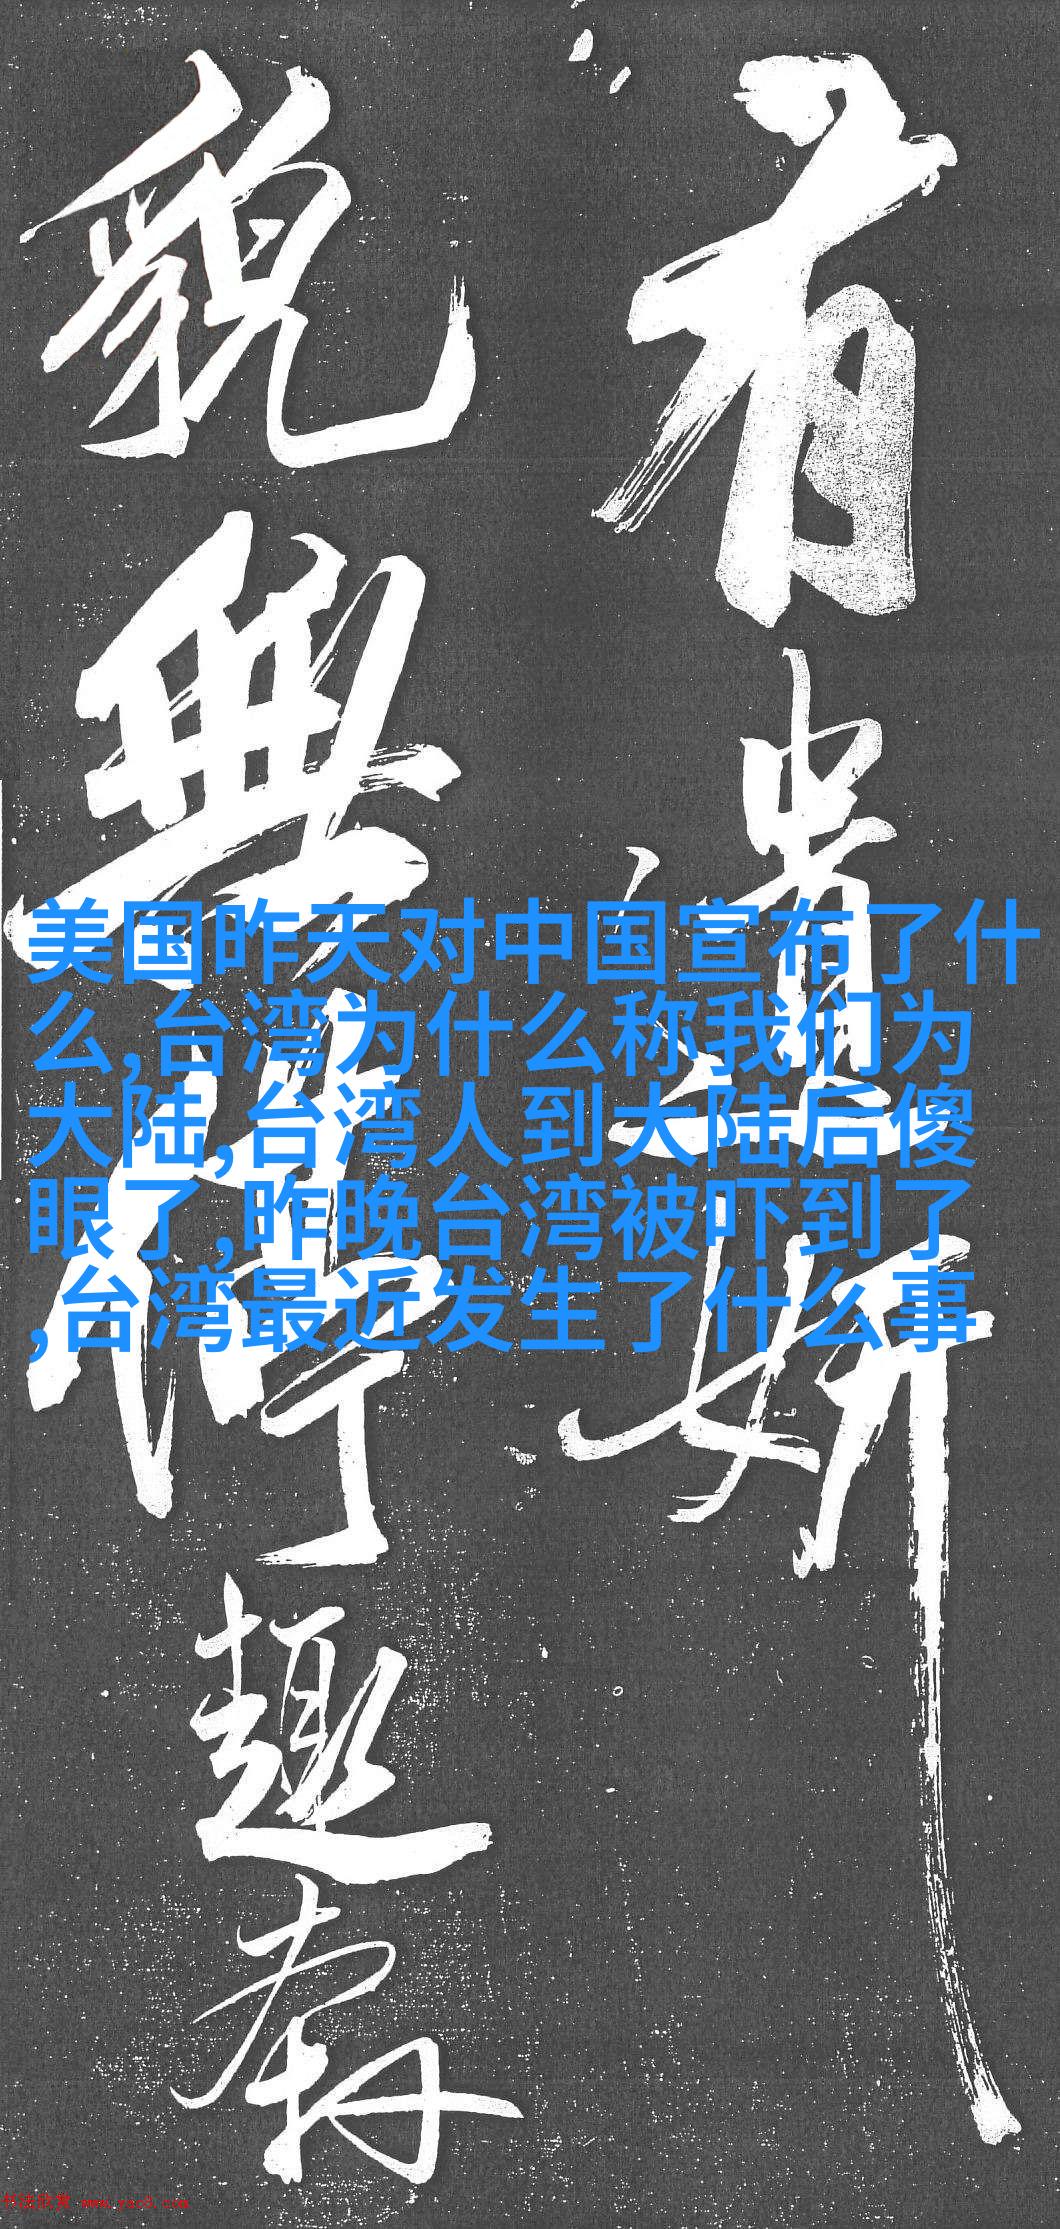 有遺妍
貌無停趣
美国昨天对中国宣布了什
么,台湾为什么称我们为
大陆,台湾人到大陆后傻
眼了,昨晚台湾被吓到了
,台湾最近发生了什么事
书法欣赏 www.yac8.com